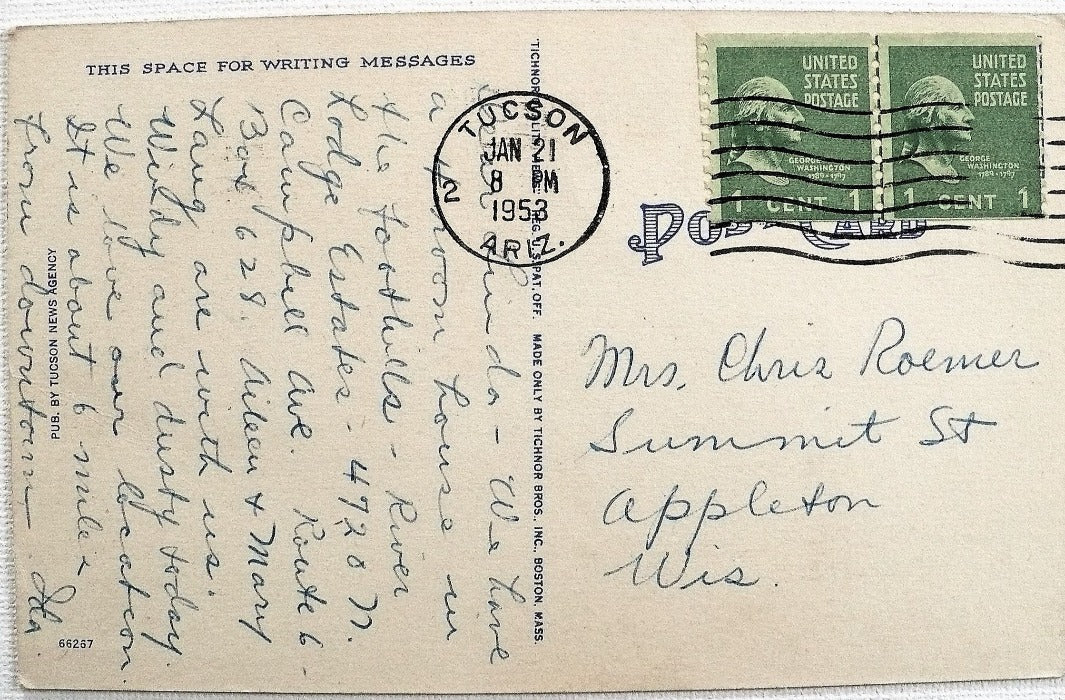 THIS SPACE FOR WRITING MESSAGES
Dear Linda - We have
a 4 room house in
the foothills - River
Lodge Estates - 4720 N.
Campbell Ave. Route 6 -
Box 628. Aileen & Mary
Lang are with us.
Windy and dusty today.
We love our location.
It is about 6 miles
from downtown - Ida.
PUB. BY TUCSON NEWS AGENCY
66267
TICHNOR REG. U.S. PAT. OFF. MADE ONLY BY TICHNOR BROS., INC., BOSTON, MASS.
TUCSON
JAN 21
8 PM
1953
ARIZ.
2
UNITED
STATES
POSTAGE
GEORGE
WASHINGTON
1789-1797
1 CENT 1
UNITED
STATES
POSTAGE
GEORGE
WASHINGTON
1789-1797
1 CENT 1
POST CARD
Mrs. Chris Roemer
Summit St
Appleton
Wis.